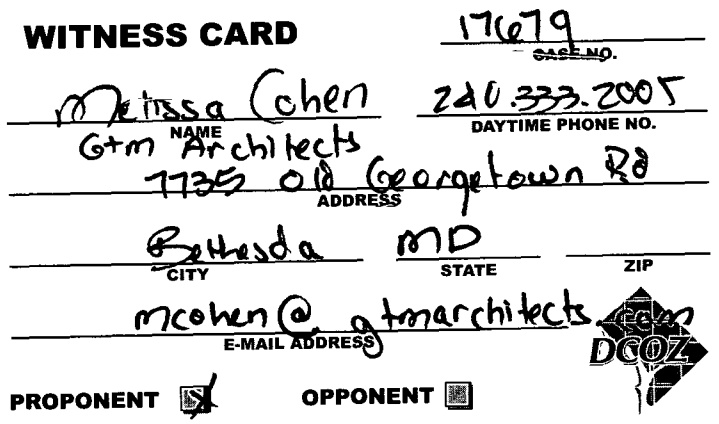 WITNESS CARD
17679
CASE NO.
Melissa Cohen
240.333.2005
NAME
DAYTIME PHONE NO.
G+m Architects
7735 Old Georgetown Rd
ADDRESS
Bethesda MD
CITY STATE ZIP
mcohen@gtmarchitects.com
E-MAIL ADDRESS
DCOZ
PROPONENT OPPONENT